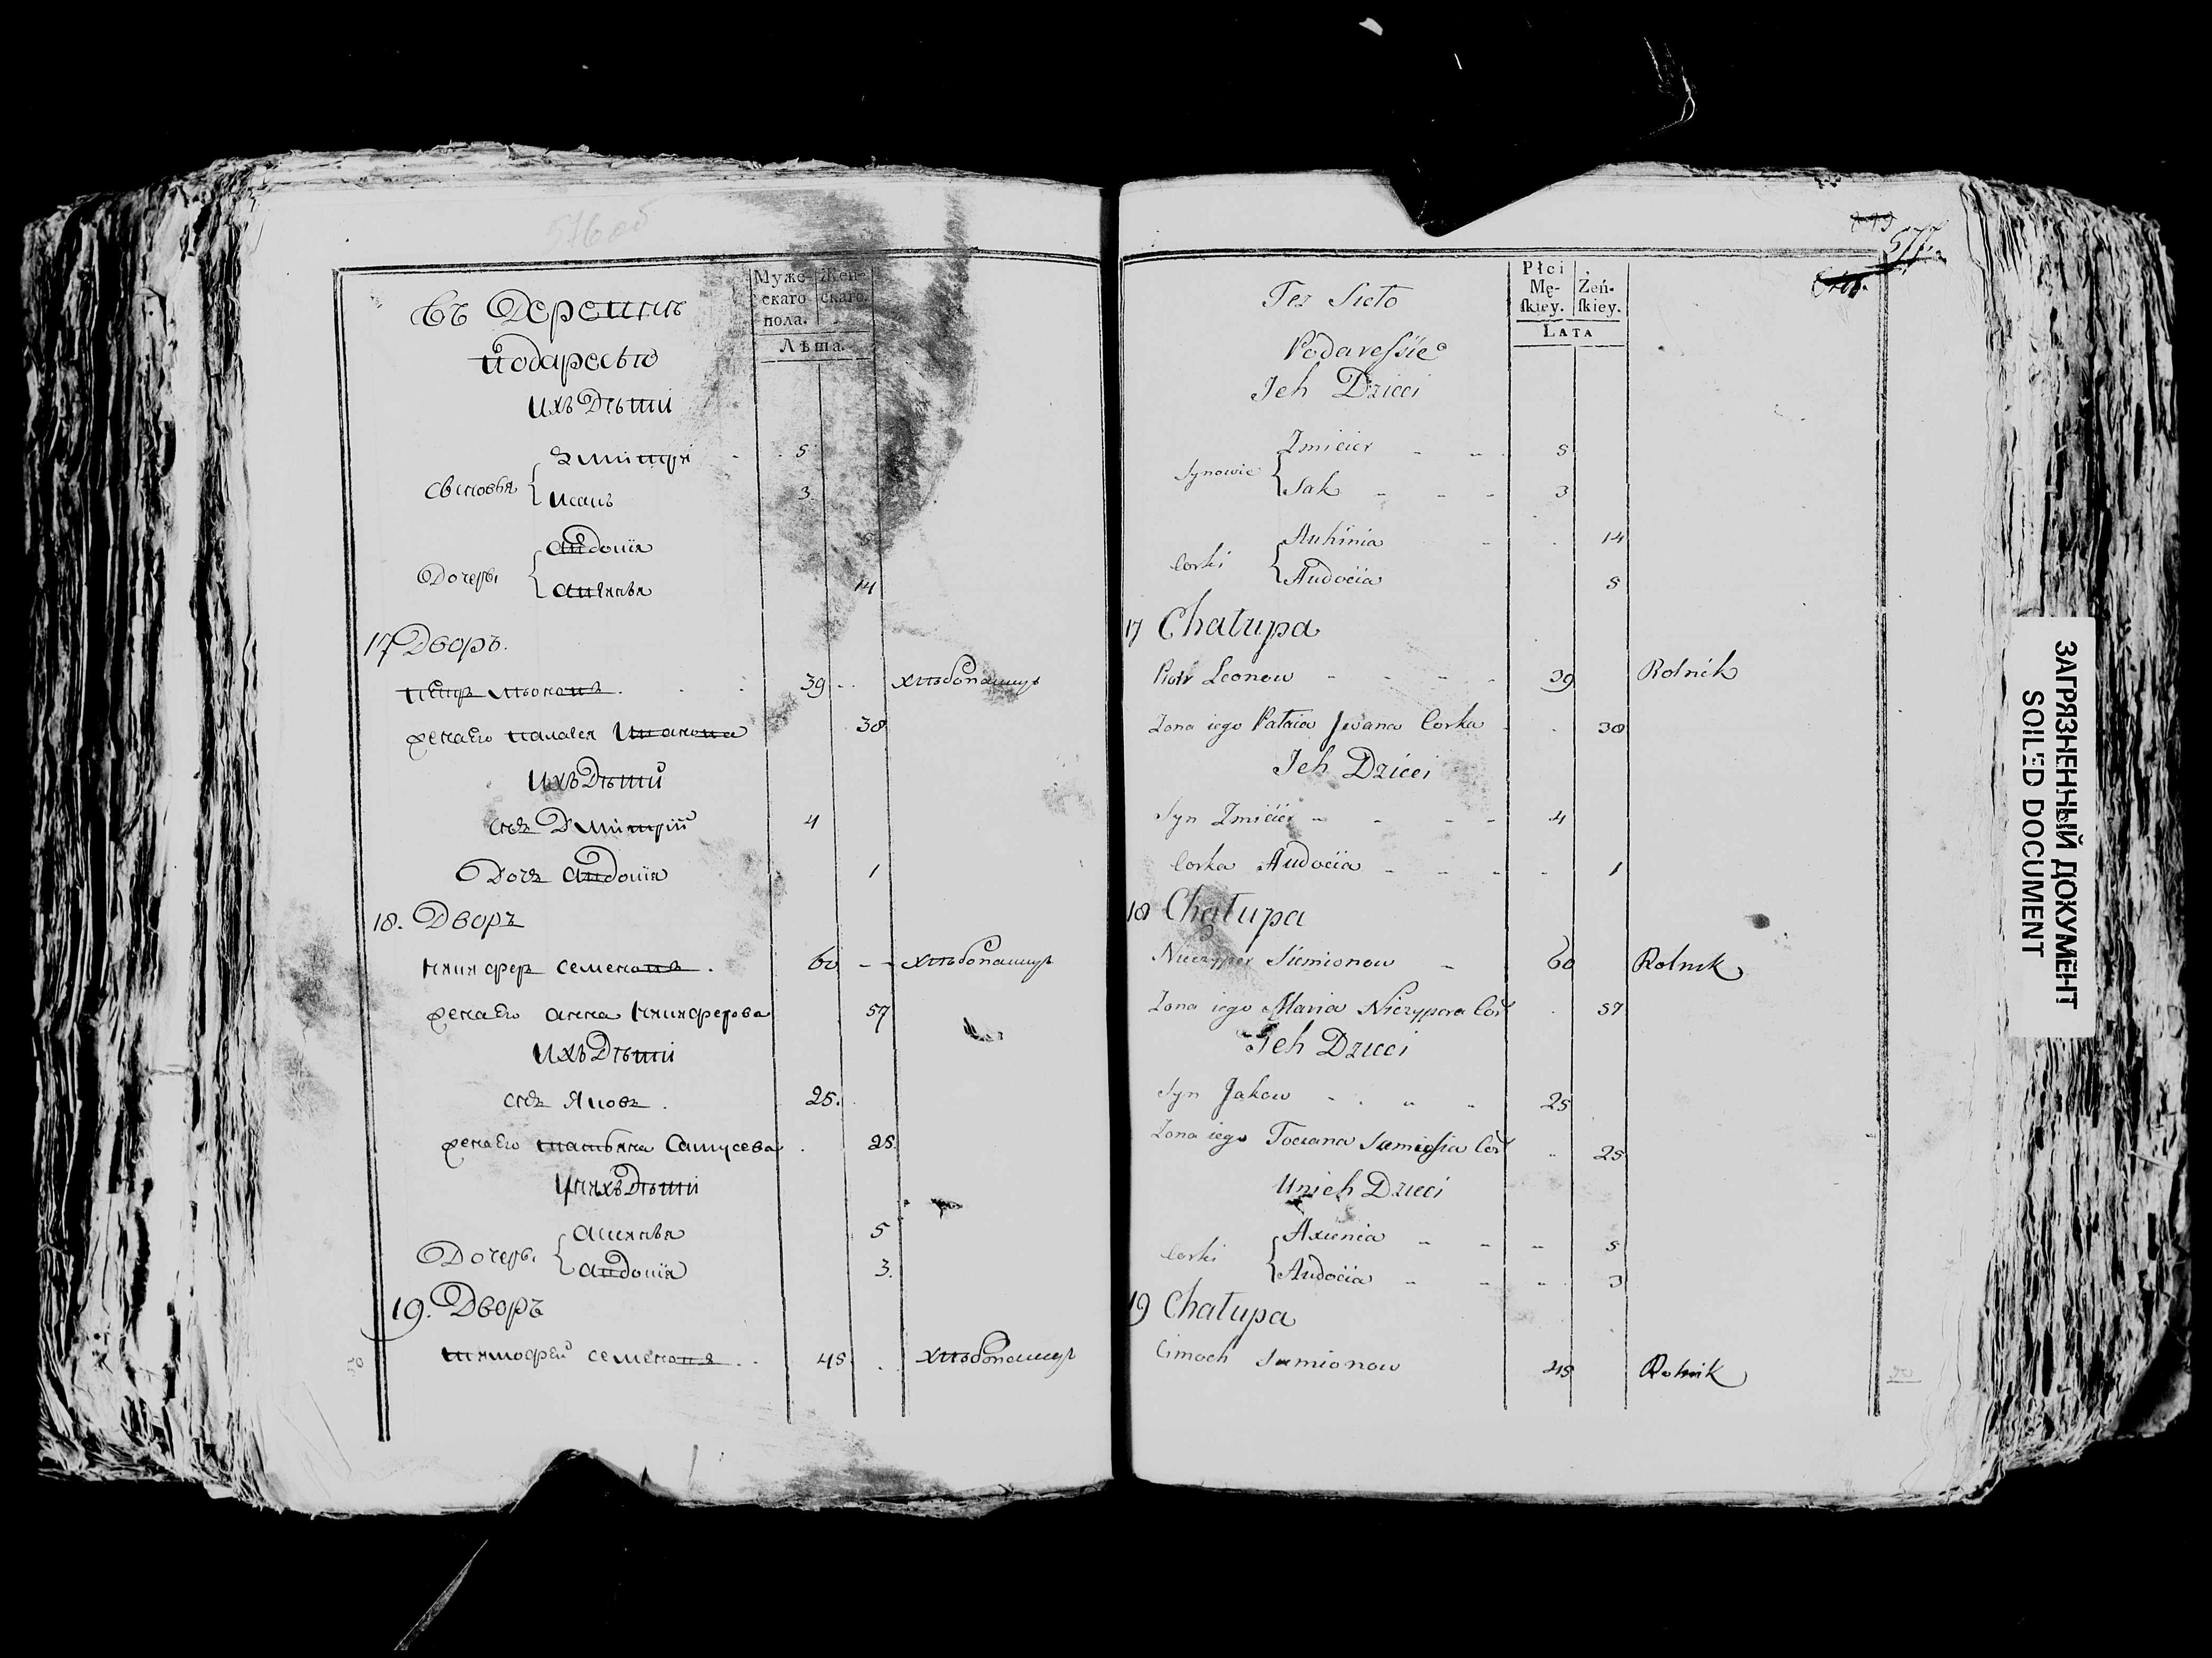 576 об
Муже-
скаго
пола.
Жен-
скаго.
Лѣта.
въ Деревнѣ
Подаресью
Ихъ Дѣти
Сыновья
Змитри 5
Исакъ 3
Дочери
Авдотія 5
14
17 Дворъ.
Петръ Леоновъ . 39 хлѣбопашцъ
жена Его Палагея Иванова 38
Ихъ Дѣти
снъ Дмитрій 4
Дочь Авдотія 1
18. Дворъ
Никифер Семеновъ . 60 хлѣбопашцъ
жена Его Анна Никиферова 57
Ихъ Дѣти
снъ Яковъ . 25.
жена Его Татьяна Самусева 25
У нихъ Дѣти
Дочери
Аксинья 5
Авдотія 3.
19. Дворъ
Тимофей Семеновъ . . 45 хлѣбопашцъ
577.
Płci
Mę-
ſkiey.
Żeń-
ſkiey.
LATA
Też Sioło
Podaresśie
Jch Dzieci
Synowie
Zmicier 5
Isak 3
Corki
Auhinia 14
Audocia 5
17 Chałupa
Piotr Leonow 39 Rolnik
Zona iego Pałaia Jwana Corka 38
Jch Dzieci
Syn Zmicier 4
Corka Audocia 1
18 Chałupa
Niczyper Siemionow 60 Rolnik
Zona iego Maria Niczypora Cor 57
Jch Dzieci
Syn Jakow 25
Zona iego Tociana Samusia Cor 25
Unich Dzieci
Corki
Axienia 5
Audocia 3
19 Chałupa
Cimoch Siemionow 45 Rolnik
ЗАГРЯЗНЕННЫЙ ДОКУМЕНТ
SOILED DOCUMENT